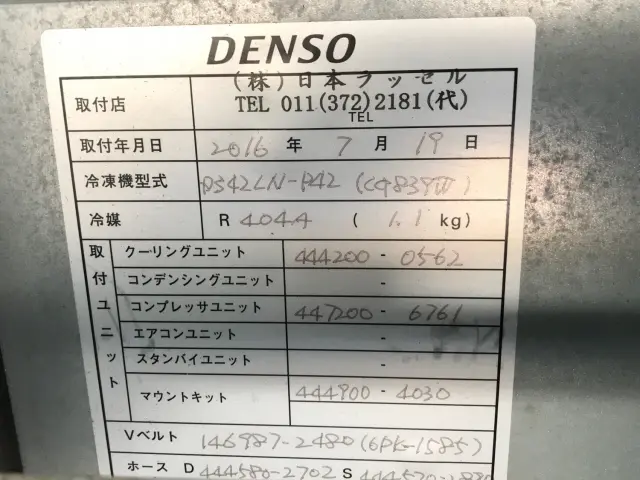 DENSO
(株)日本フッセル
取付店 TEL 011(372)2181(代)
TEL
取付年月日 2016 年 7 月 19 日
冷凍機型式
冷媒 R 404A ( 1.1 kg)
取付ユニット
クーリングユニット 444200 - 0562
コンデンシングユニット -
コンプレッサユニット 447200 - 6761
エアコンユニット -
スタンバイユニット -
マウントキット 444900 - 4030
-
Vベルト 146987-2480 (6PK-1585)
ホース D 444580-2702 S